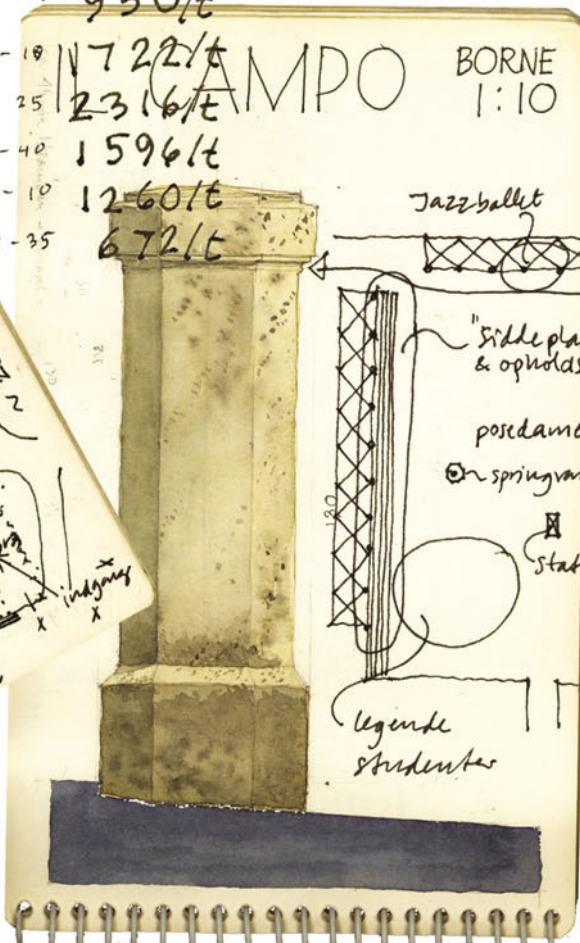 18 1722/t
25 2316/t
40 1596/t
10 1260/t
-35 672/t
IL CAMPO
BORNE
1:10
Jazzballet
"Siddepla
& opholds
posedame
springvan
Stat
130
legende
studenter
indgang
x
x
2